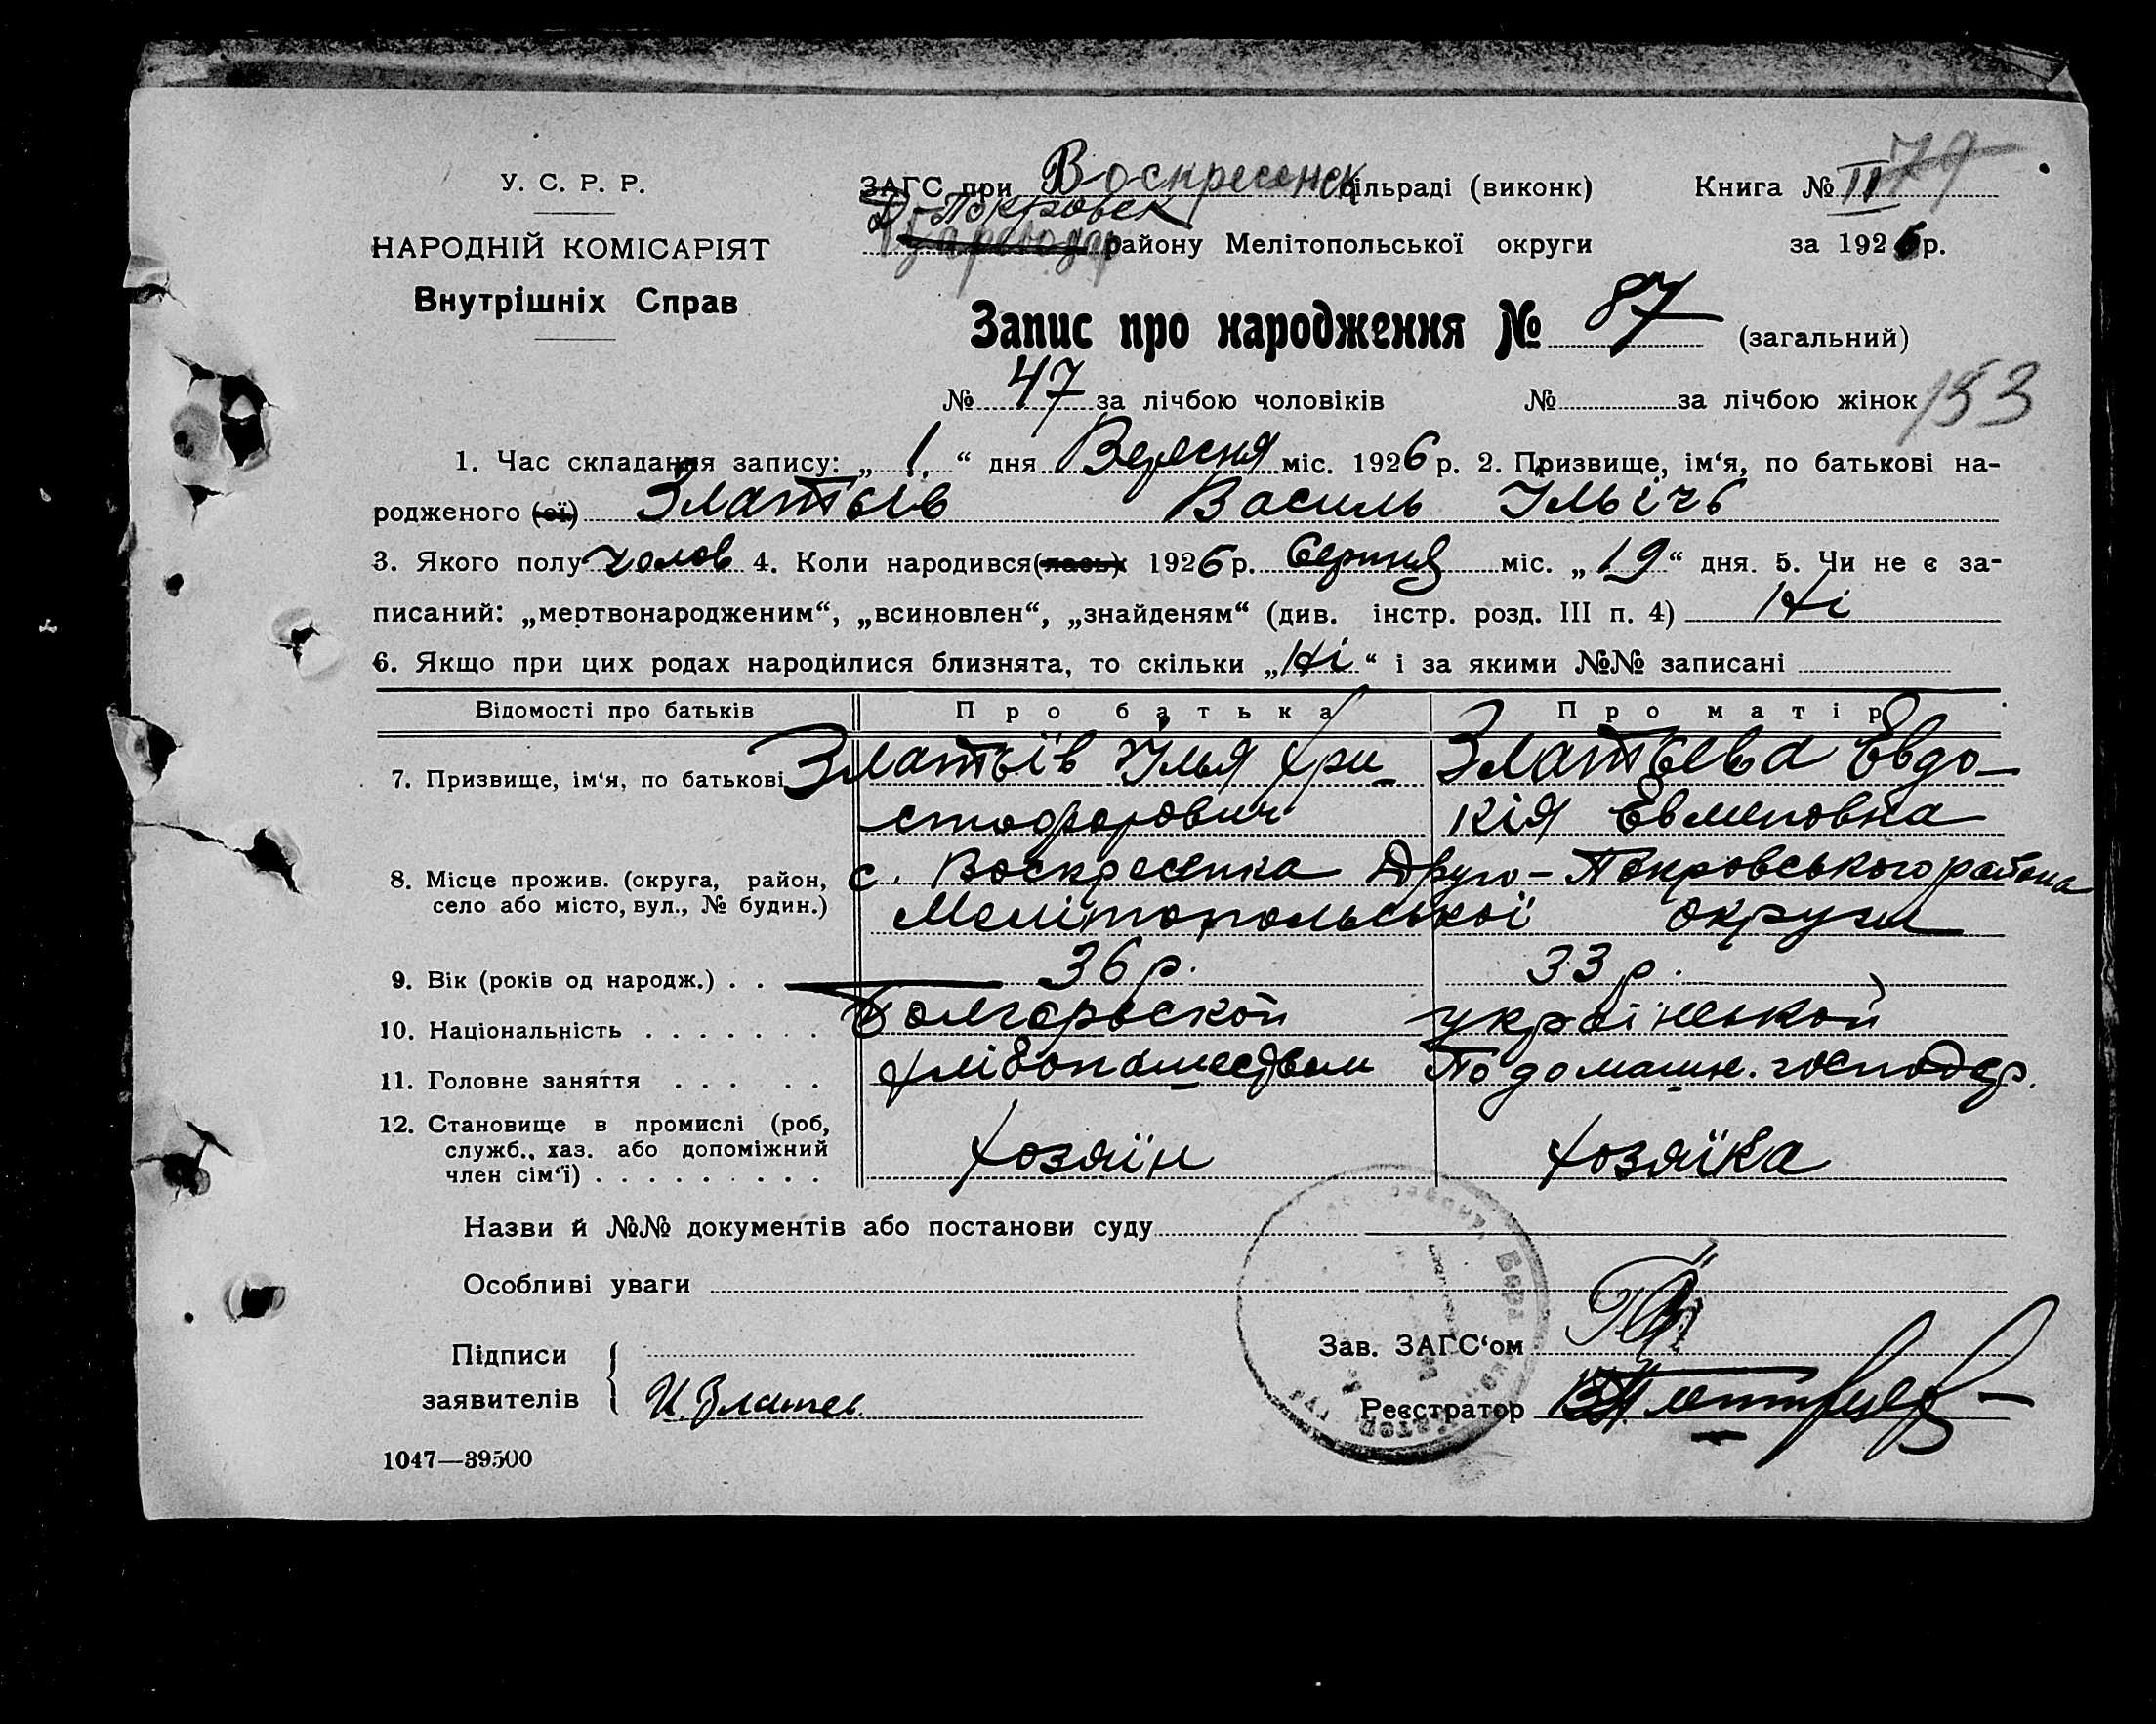 У. С. Р. Р.
НАРОДНІЙ КОМІСАРІЯТ
Внутрішніх Справ
ЗАГС при Воскресенск сільраді (виконк) Книга № II 79
Д-Покровск
району Мелітопольської округи за 1926 р.
Запис про народження № 87 (загальний)
№ 47 за лічбою чоловіків № за лічбою жінок 153
1. Час складання запису: „ 1. “ дня Вересня міс. 1926 р. 2. Призвище, ім‘я, по батькові на-
родженого (ої) Златьів Василь Ільічь
3. Якого полу чолов 4. Коли народився (лась) 1926 р. Серпня міс. „ 19 “ дня. 5. Чи не є за-
писаний: „мертвонародженим“, „всиновлен“, „знайденям“ (див. інстр. розд. III п. 4) Ні
6. Якщо при цих родах народилися близнята, то скільки „ Ні “ і за якими №№ записані
Відомості про батьків Про батька Про матір
7. Призвище, ім‘я, по батькові Златьів Ілья Хри- Златьева Евдо-
стофорович кія Евменовна
8. Місце прожив. (округа, район, с. Воскресенка Друго-Покровського района
село або місто, вул., № будин.) Мелітопольської округи
9. Вік (років од народж.) . . 36 р. 33 р.
10. Національність . . . . . . . Болгарськой українськой
11. Головне заняття . . . . . хлібопашеством По домашн. господар.
12. Становище в промислі (роб,
служб., хаз. або допоміжний хозяїн хозяїка
член сім‘ї) . . . . . . . . .
Назви й №№ документів або постанови суду
Особливі уваги
Підписи
Зав. ЗАГС‘ом
заявителів И. Златев
Реєстратор
1047—39500